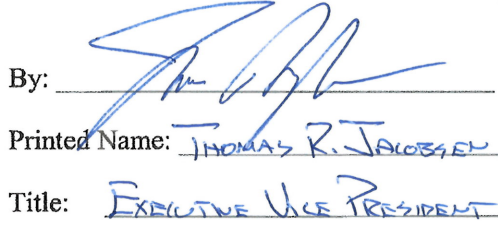 By:
Printed Name: THOMAS R. JACOBSEN
Title: EXECUTIVE VICE PRESIDENT